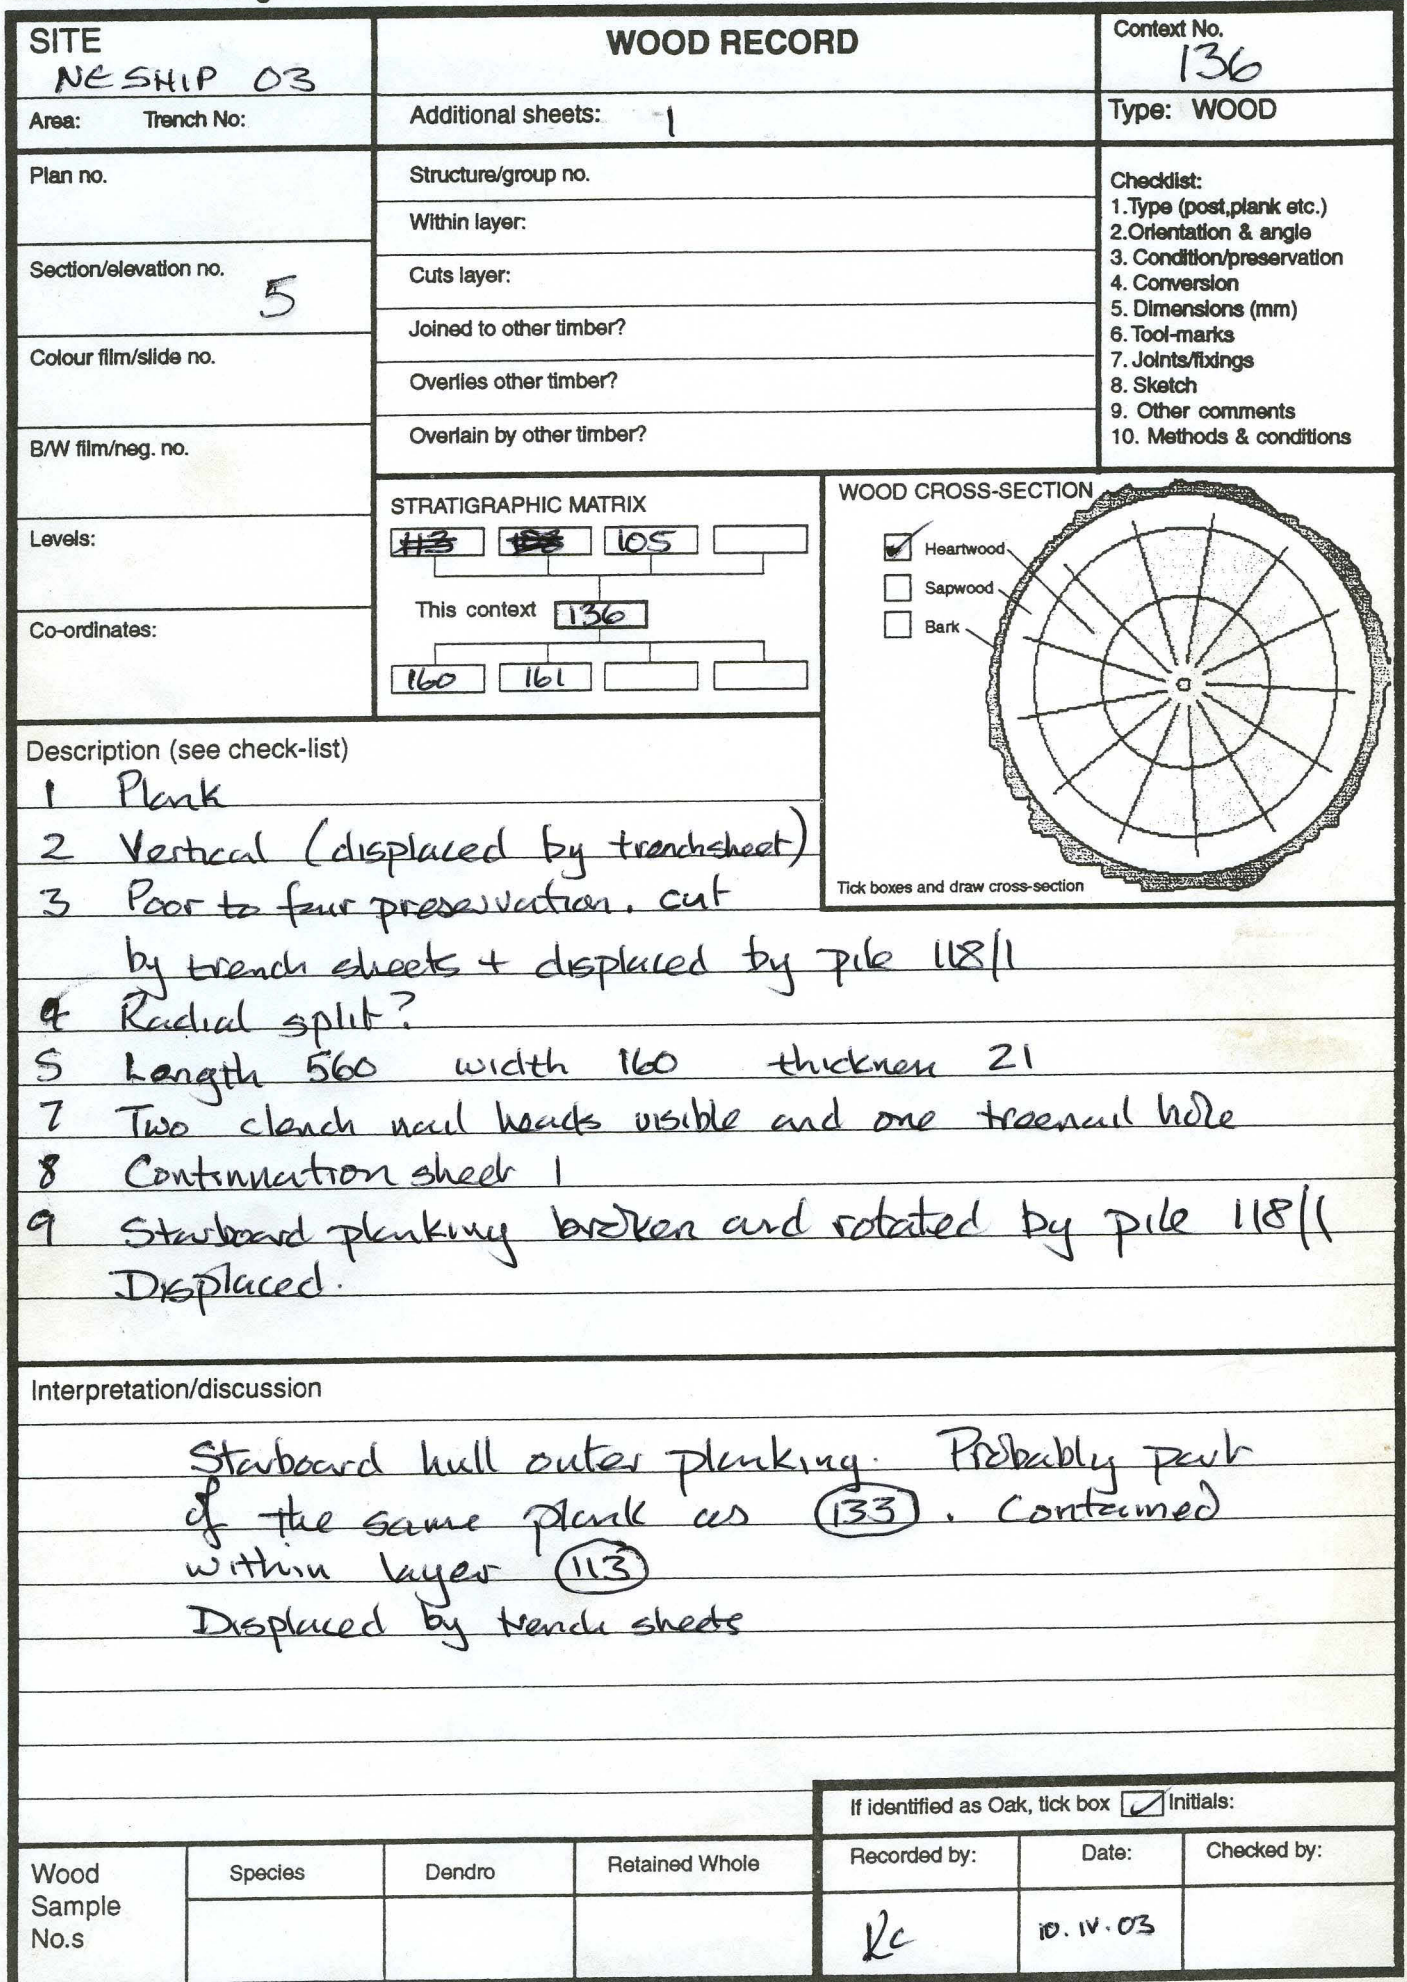 SITE
NESHIP 03
WOOD RECORD
Context No.
136
Area: Trench No:
Additional sheets: 1
Type: WOOD
Plan no.
Section/elevation no.
5
Colour film/slide no.
B/W film/neg. no.
Levels:
Co-ordinates:
Structure/group no.
Within layer:
Cuts layer:
Joined to other timber?
Overlies other timber?
Overlain by other timber?
Checklist:
1.Type (post,plank etc.)
2.Orientation & angle
3. Condition/preservation
4. Conversion
5. Dimensions (mm)
6. Tool-marks
7. Joints/fixings
8. Sketch
9. Other comments
10. Methods & conditions
STRATIGRAPHIC MATRIX
113 105
This context 136
160 161
WOOD CROSS-SECTION
Heartwood
Sapwood
Bark
Tick boxes and draw cross-section
Description (see check-list)
1 Plank
2 Vertical (displaced by trenchsheet)
3 Poor to fair preservation. cut
by trench sheets + displaced by pile 118/1
4 Radial split?
5 Length 560 width 160 thickness 21
7 Two clench nail heads visible and one treenail hole
8 Continuation sheet 1
9 Starboard planking broken and rotated by pile 118/1
Displaced.
Interpretation/discussion
Starboard hull outer planking. Probably part
of the same plank as 133. Contained
within layer 113
Displaced by trench sheets
If identified as Oak, tick box Initials:
Wood
Sample
No.s
Species
Dendro
Retained Whole
Recorded by:
Date:
Checked by:
KC
10.IV.03